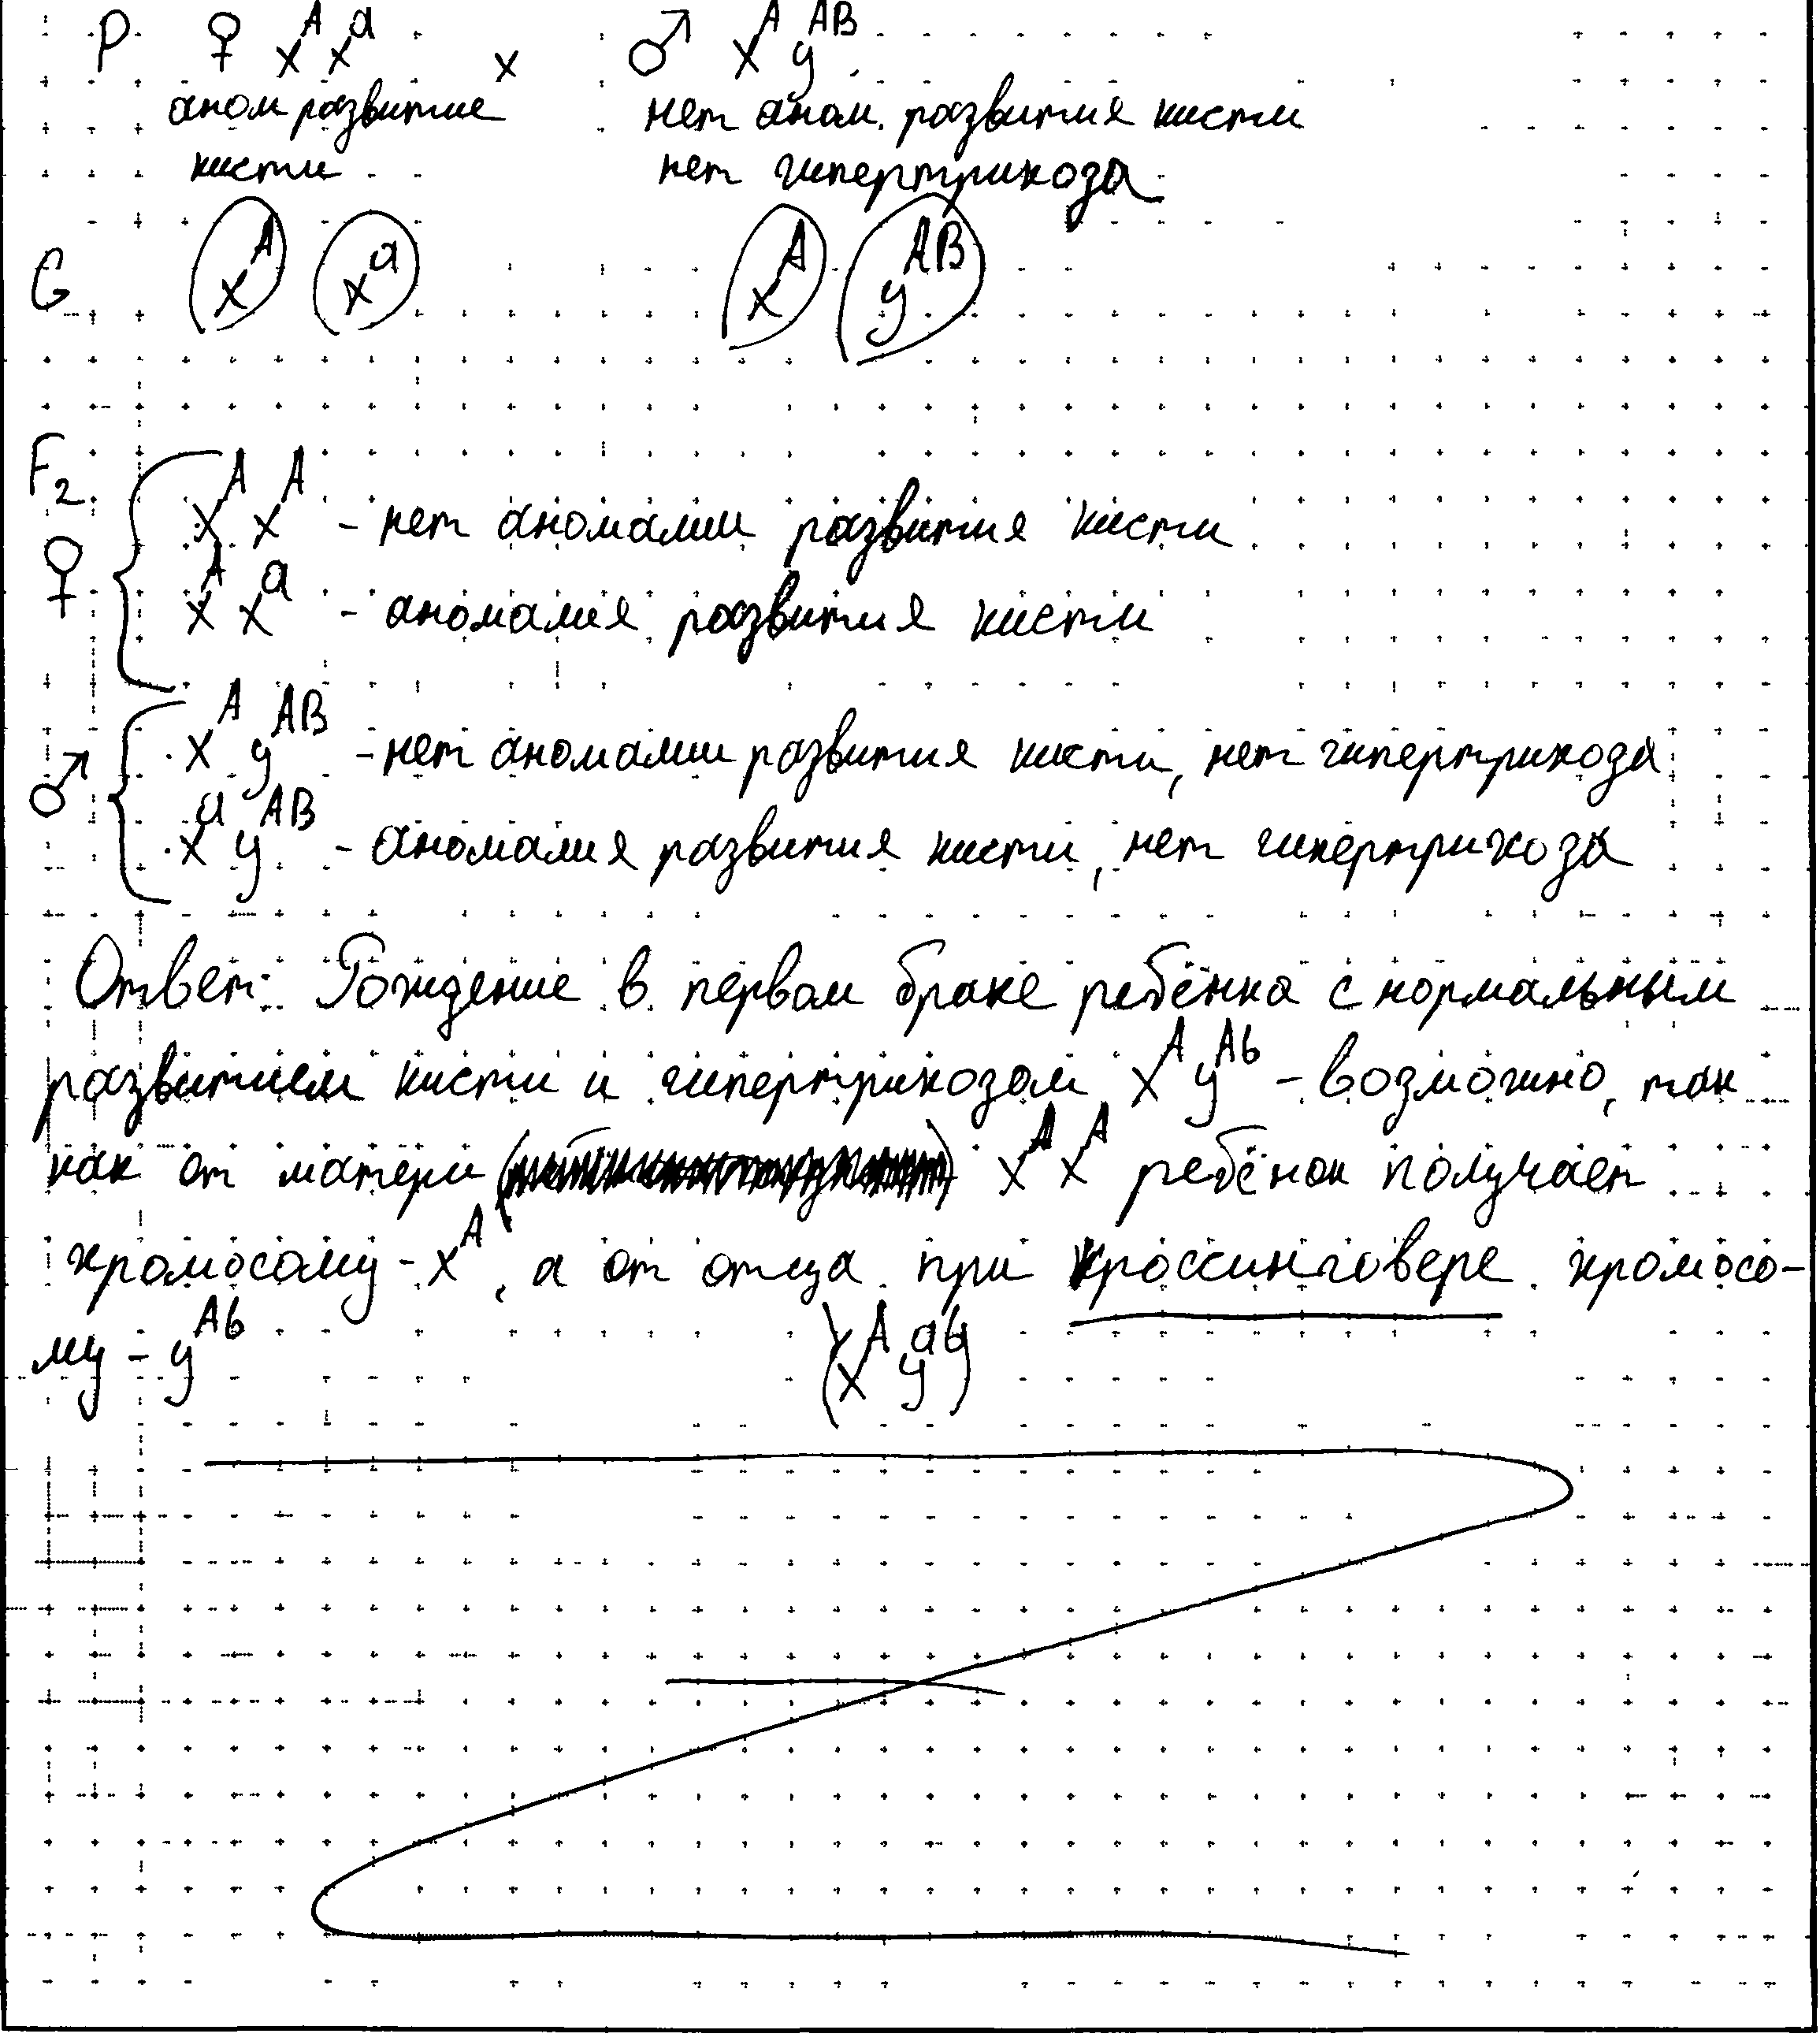 P ♀ X^A X^a x ♂ X^A y^AB
аном развитие нет аном. развития кисти
кисти нет гипертрихоза
G X^A X^a X^A y^AB
F2
♀ X^A X^A - нет аномалии развития кисти
X^A X^a - аномалия развития кисти
♂ X^A y^AB - нет аномалии развития кисти, нет гипертрихоза
X^a y^AB - аномалия развития кисти, нет гипертрихоза
Ответ: Рождение в первом браке ребёнка с нормальным
развитием кисти и гипертрихозом X^A y^Ab - возможно, так
как от матери X^A X^A ребёнок получает
хромосому - X^A, а от отца при кроссинговере хромосо-
му - y^Ab (X^A y^ab)